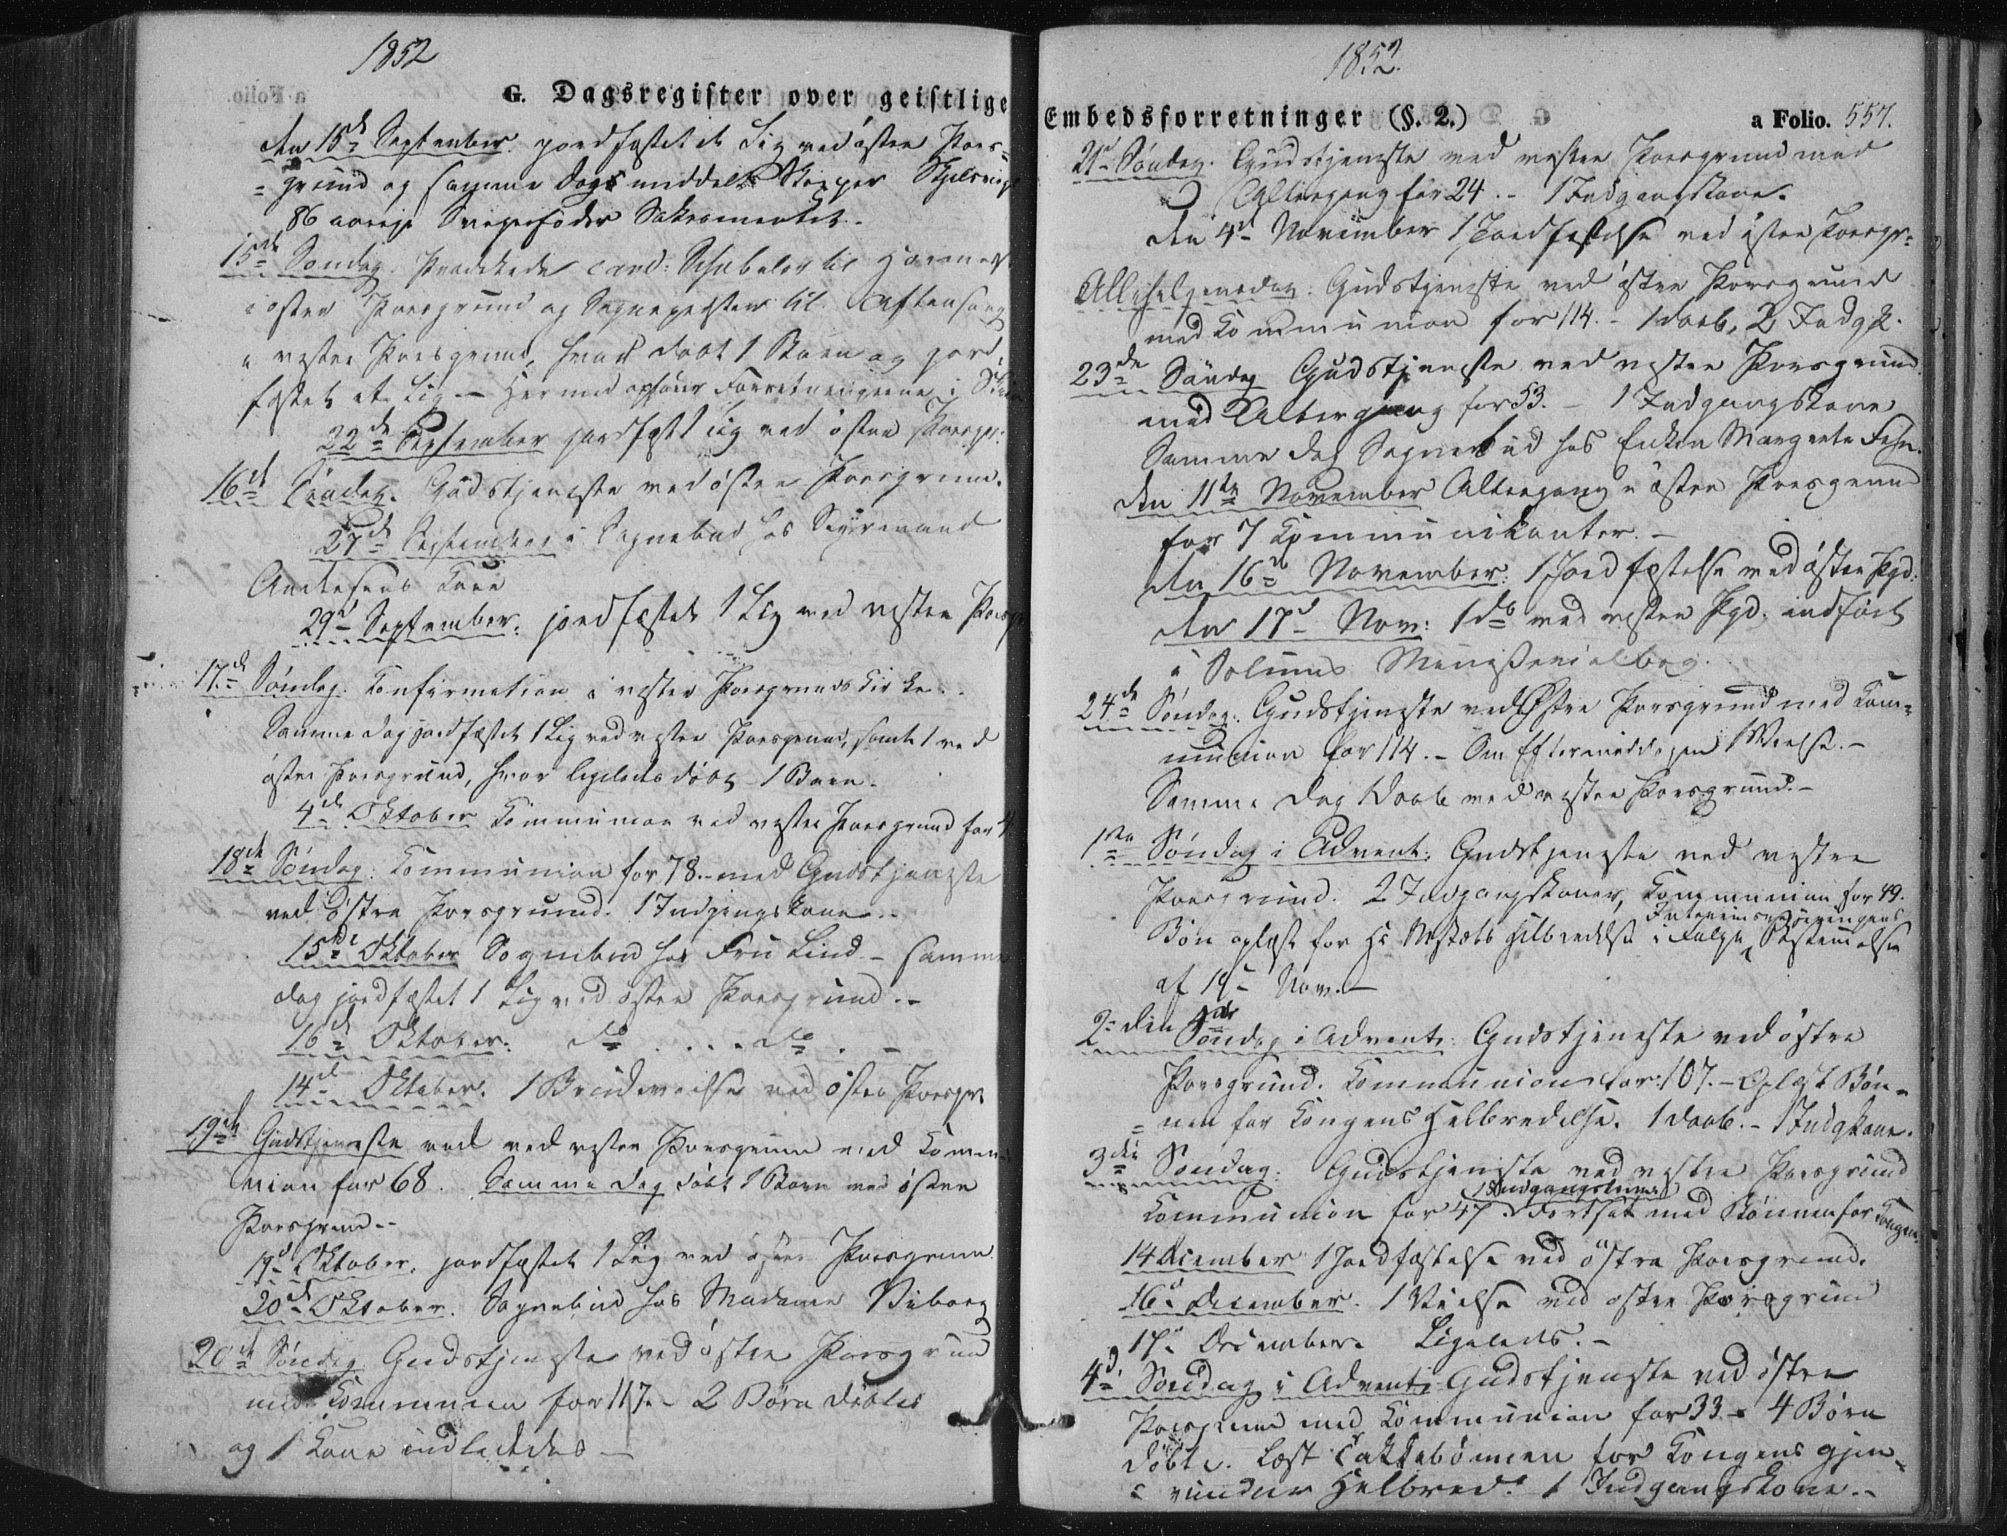 1852
G. Dagsregister over geistlige
den 15de September jordfæstet et Lig ved østre Pors-
grund og samme Dag meddelt Skipper
86 aarige Svigerfader Sakramentet.
15de Søndag. Prædikede cand: til
østre Porsgrund og Sognepræsten til Aftensang
i vestre Porsgrund, hvor døbt 1 Barn og jord-
fæstet et Lig – Hermed ophører Forretningerne i
22de September jordfæst 1 Lig ved østre Porsgr:
16de Søndag. Gudstjeneste ved østre Porsgrund.
27de September i Sognebud hos Styrmand
Andersens Kone
29de September: jordfæstet 1 Lig ved vestre Porsgr
17de Søndag. Confirmation i vestre Porsgrunds Kirke.
Samme Dag jordfæstet 1 Lig ved vestre Porsgrund, samt 1 ved
østre Porsgrund, hvor ligeledes døbt 1 Barn.
4de Oktober Kommunion ved vestre Porsgrund for
18de Søndag: Kommunion for 78. – med Gudstjeneste
ved østre Porsgrund. 1 Indgangskone.
15de Oktober Sognebud hos Fru Lind – samme
dag jordfæstet 1 Lig ved østre Porsgrund. –
16de Oktober: do . . . . do . –
14de Oktober. 1 Brudevielse ved østre Porsgr.
19de Gudstjeneste ved ved vestre Porsgrund med Kommu-
nion for 68. Samme Dag døbt 1 Barn ved østre
Porsgrund. –
19de Oktober. jordfæstet 1 Lig ved østre Porsgrund.
20de Oktober. Sognebud hos Madame Viborg
20de Søndag Gudstjeneste ved østre Porsgrund
med Kommunion for 117. – 2 Børn døbtes
og 1 Kone indlededes –
1852.
Embedsforretninger (§. 2.)
a Folio. 557.
21de Søndag. Gudstjeneste ved vestre Porsgrund med
Altergang for 24. – 1 Indgangskone.
den 4de November 1 Jordfæstelse ved østre Porsgr:
Allehelgensdag: Gudstjeneste ved østre Porsgrund
med Kommunion for 114. – 1 Daab, 2 Indgk.
23de Søndag Gudstjeneste ved vestre Porsgrund.
med Altergang for 53. – 1 Indgangskone
Samme Dag Sognebud hos Enken Margrete
den 11te November Altergang i østre Porsgrund
for 7 Kommunikanter. –
den 16de November: 1 Jordfæstelse ved østre Pgd:
den 17de Nov: 1 do ved vestre Pgd. indført
i Solums Ministerialbog.
24de Søndag: Gudstjeneste ved Østre Porsgrund med Kom-
munion for 114. – Om Eftermiddagen 1 Vielse. –
Samme Dag 1 Daab ved vestre Porsgrund. –
1ste Søndag i Advent: Gudstjeneste ved vestre
Porsgrund. 2 Indgangskoner, Kommunion for 49.
Interimsregjeringens
Bøn oplæst for Hs Majestæts Helbredelse i Følge Bestemmelse
af 19de Nov. –
2den Søndag i Advent: Gudstjeneste ved østre
Porsgrund. Kommunion for 107. – Oplæst Bøn-
nen for Kongens Helbredelse. 1 Daab. – 1 Indgkone.
3die Søndag: Gudstjeneste ved vestre Porsgrund
1 Indgangskone
Kommunion for 47. Fortsat med Bønnen for Kongen.
14 December 1 Jordfæstelse ved østre Porsgrund.
16de December. 1 Vielse ved østre Porsgrund
17de December. Ligeledes. –
4de Søndag i Advent: Gudstjeneste ved østre
Porsgrund med Kommunion for 33. – 4 Børn
døbte. Læst Takkebønnen for Kongens gjen-
vundne Helbred. 1 Indgangskone. –